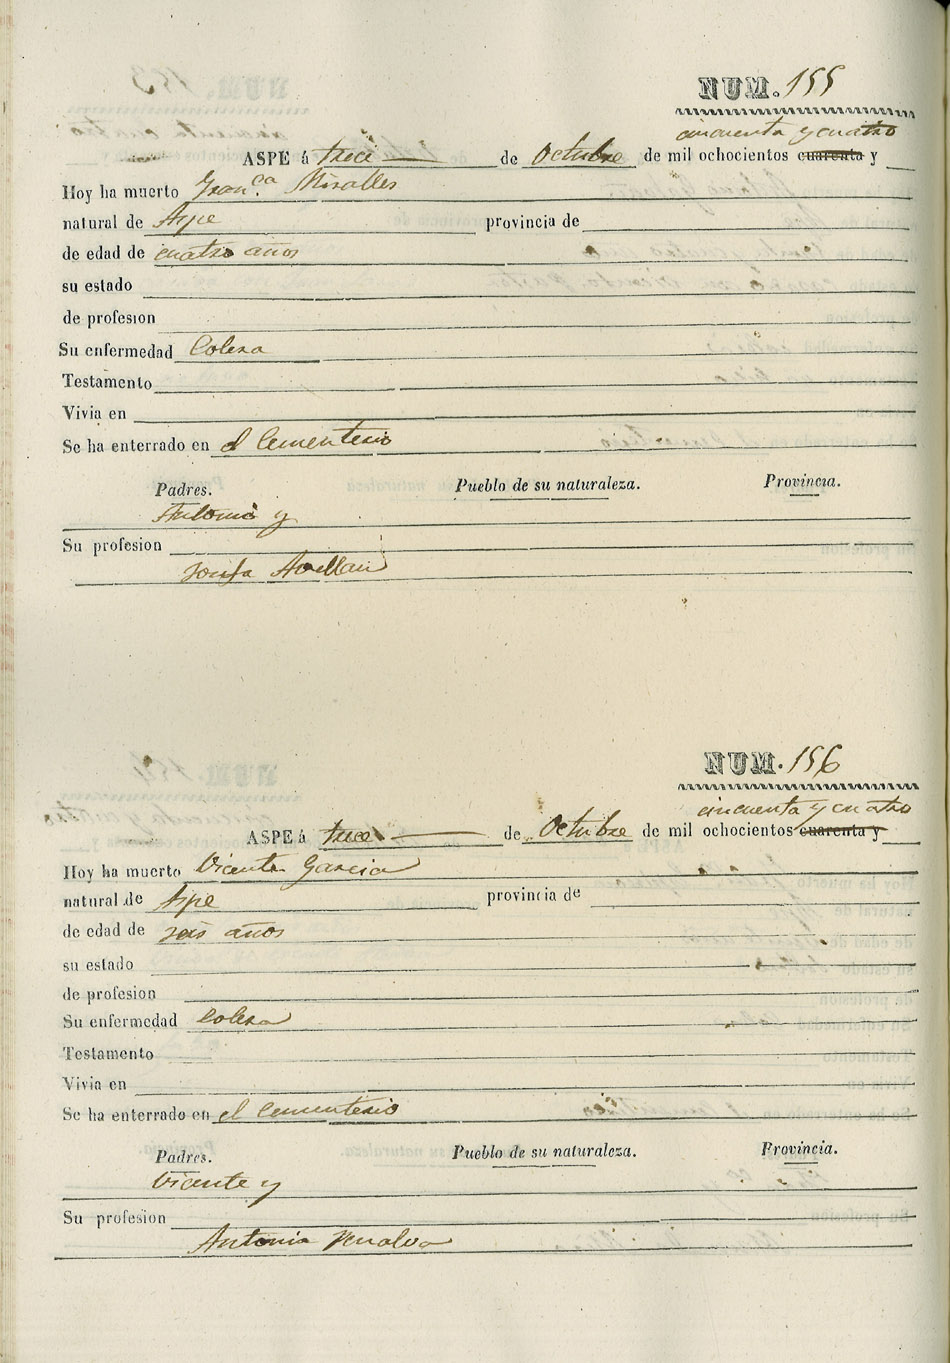 NUM. 155
cincuenta y cuatro
ASPE á trece de Octubre de mil ochocientos cuarenta y
Hoy ha muerto Fran.ca Miralles
natural de Aspe provincia de
de edad de cuatro años
su estado
de profesion
Su enfermedad Colera
Testamento
Vivia en
Se ha enterrado en el Cementerio
Padres. Pueblo de su naturaleza. Provincia.
Antonio y
Su profesion
Josefa Avellan
NUM. 156
cincuenta y cuatro
ASPE á trece de Octubre de mil ochocientos cuarenta y
Hoy ha muerto Vicente Garcia
natural de Aspe provincia de
de edad de seis años
su estado
de profesion
Su enfermedad Colera
Testamento
Vivia en
Se ha enterrado en el Cementerio
Padres. Pueblo de su naturaleza. Provincia.
Vicente y
Su profesion
Antonia